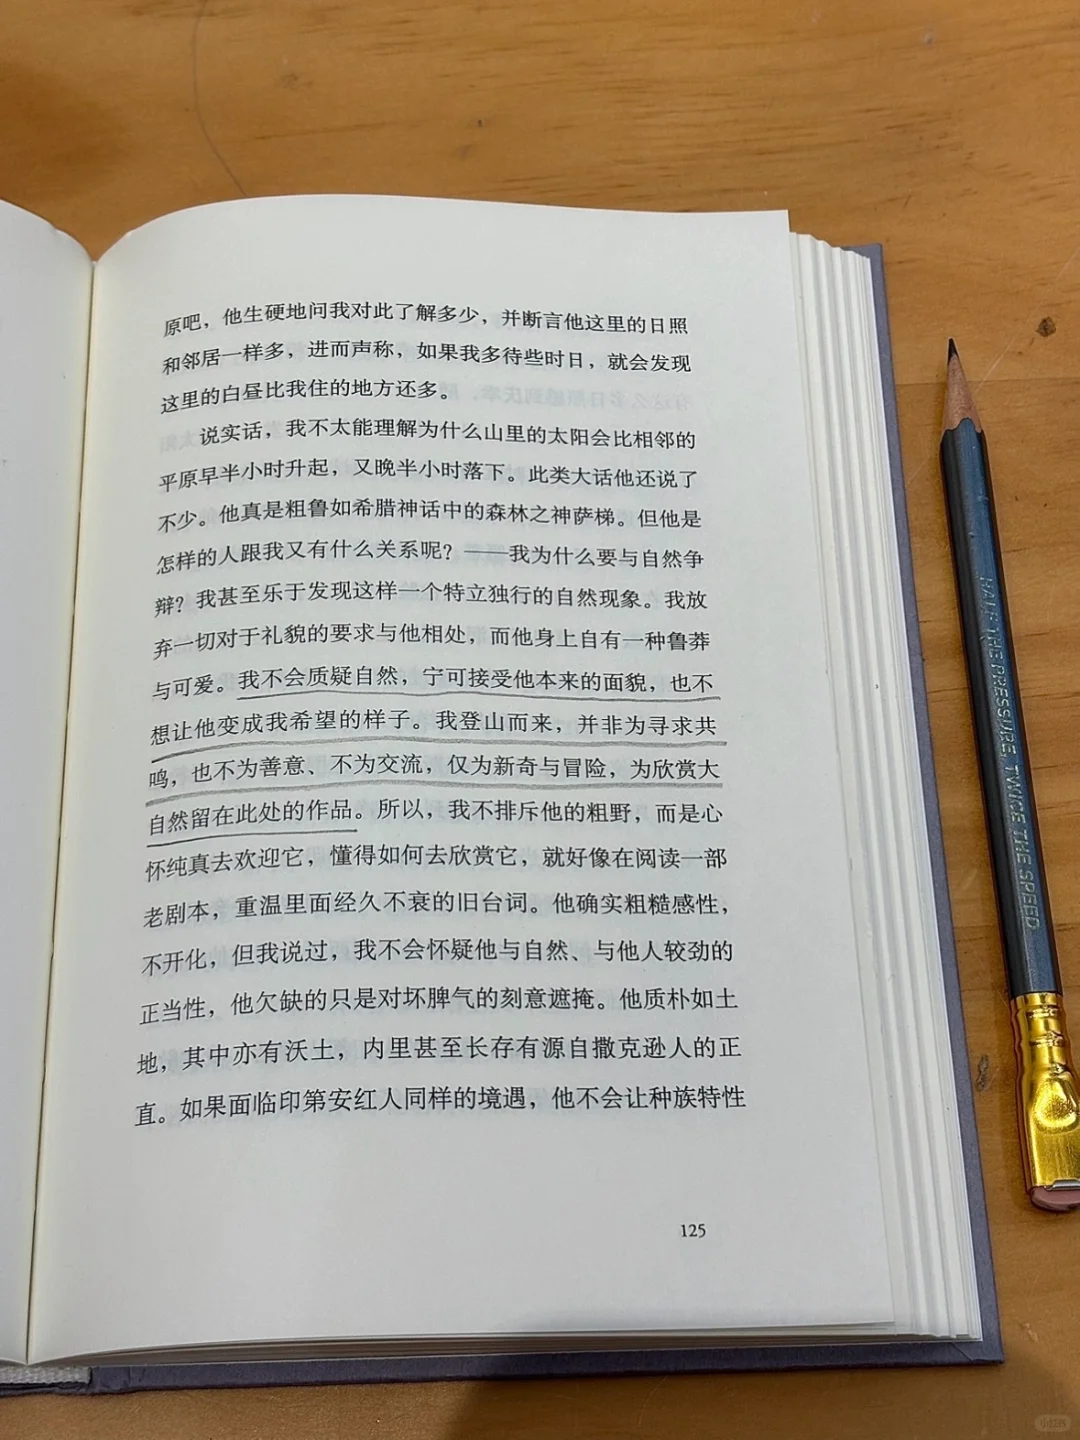 原吧，他生硬地问我对此了解多少，并断言他这里的日照
和邻居一样多，进而声称，如果我多待些时日，就会发现
这里的白昼比我住的地方还多。
说实话，我不太能理解为什么山里的太阳会比相邻的
平原早半小时升起，又晚半小时落下。此类大话他还说了
不少。他真是粗鲁如希腊神话中的森林之神萨梯。但他是
怎样的人跟我又有什么关系呢？——我为什么要与自然争
辩？我甚至乐于发现这样一个特立独行的自然现象。我放
弃一切对于礼貌的要求与他相处，而他身上自有一种鲁莽
与可爱。我不会质疑自然，宁可接受他本来的面貌，也不
想让他变成我希望的样子。我登山而来，并非为寻求共
鸣，也不为善意、不为交流，仅为新奇与冒险，为欣赏大
自然留在此处的作品。所以，我不排斥他的粗野，而是心
怀纯真去欢迎它，懂得如何去欣赏它，就好像在阅读一部
老剧本，重温里面经久不衰的旧台词。他确实粗糙感性，
不开化，但我说过，我不会怀疑他与自然、与他人较劲的
正当性，他欠缺的只是对坏脾气的刻意遮掩。他质朴如土
地，其中亦有沃土，内里甚至长存有源自撒克逊人的正
直。如果面临印第安红人同样的境遇，他不会让种族特性
125
HALF THE PRESSURE, TWICE THE SPEED
小红书